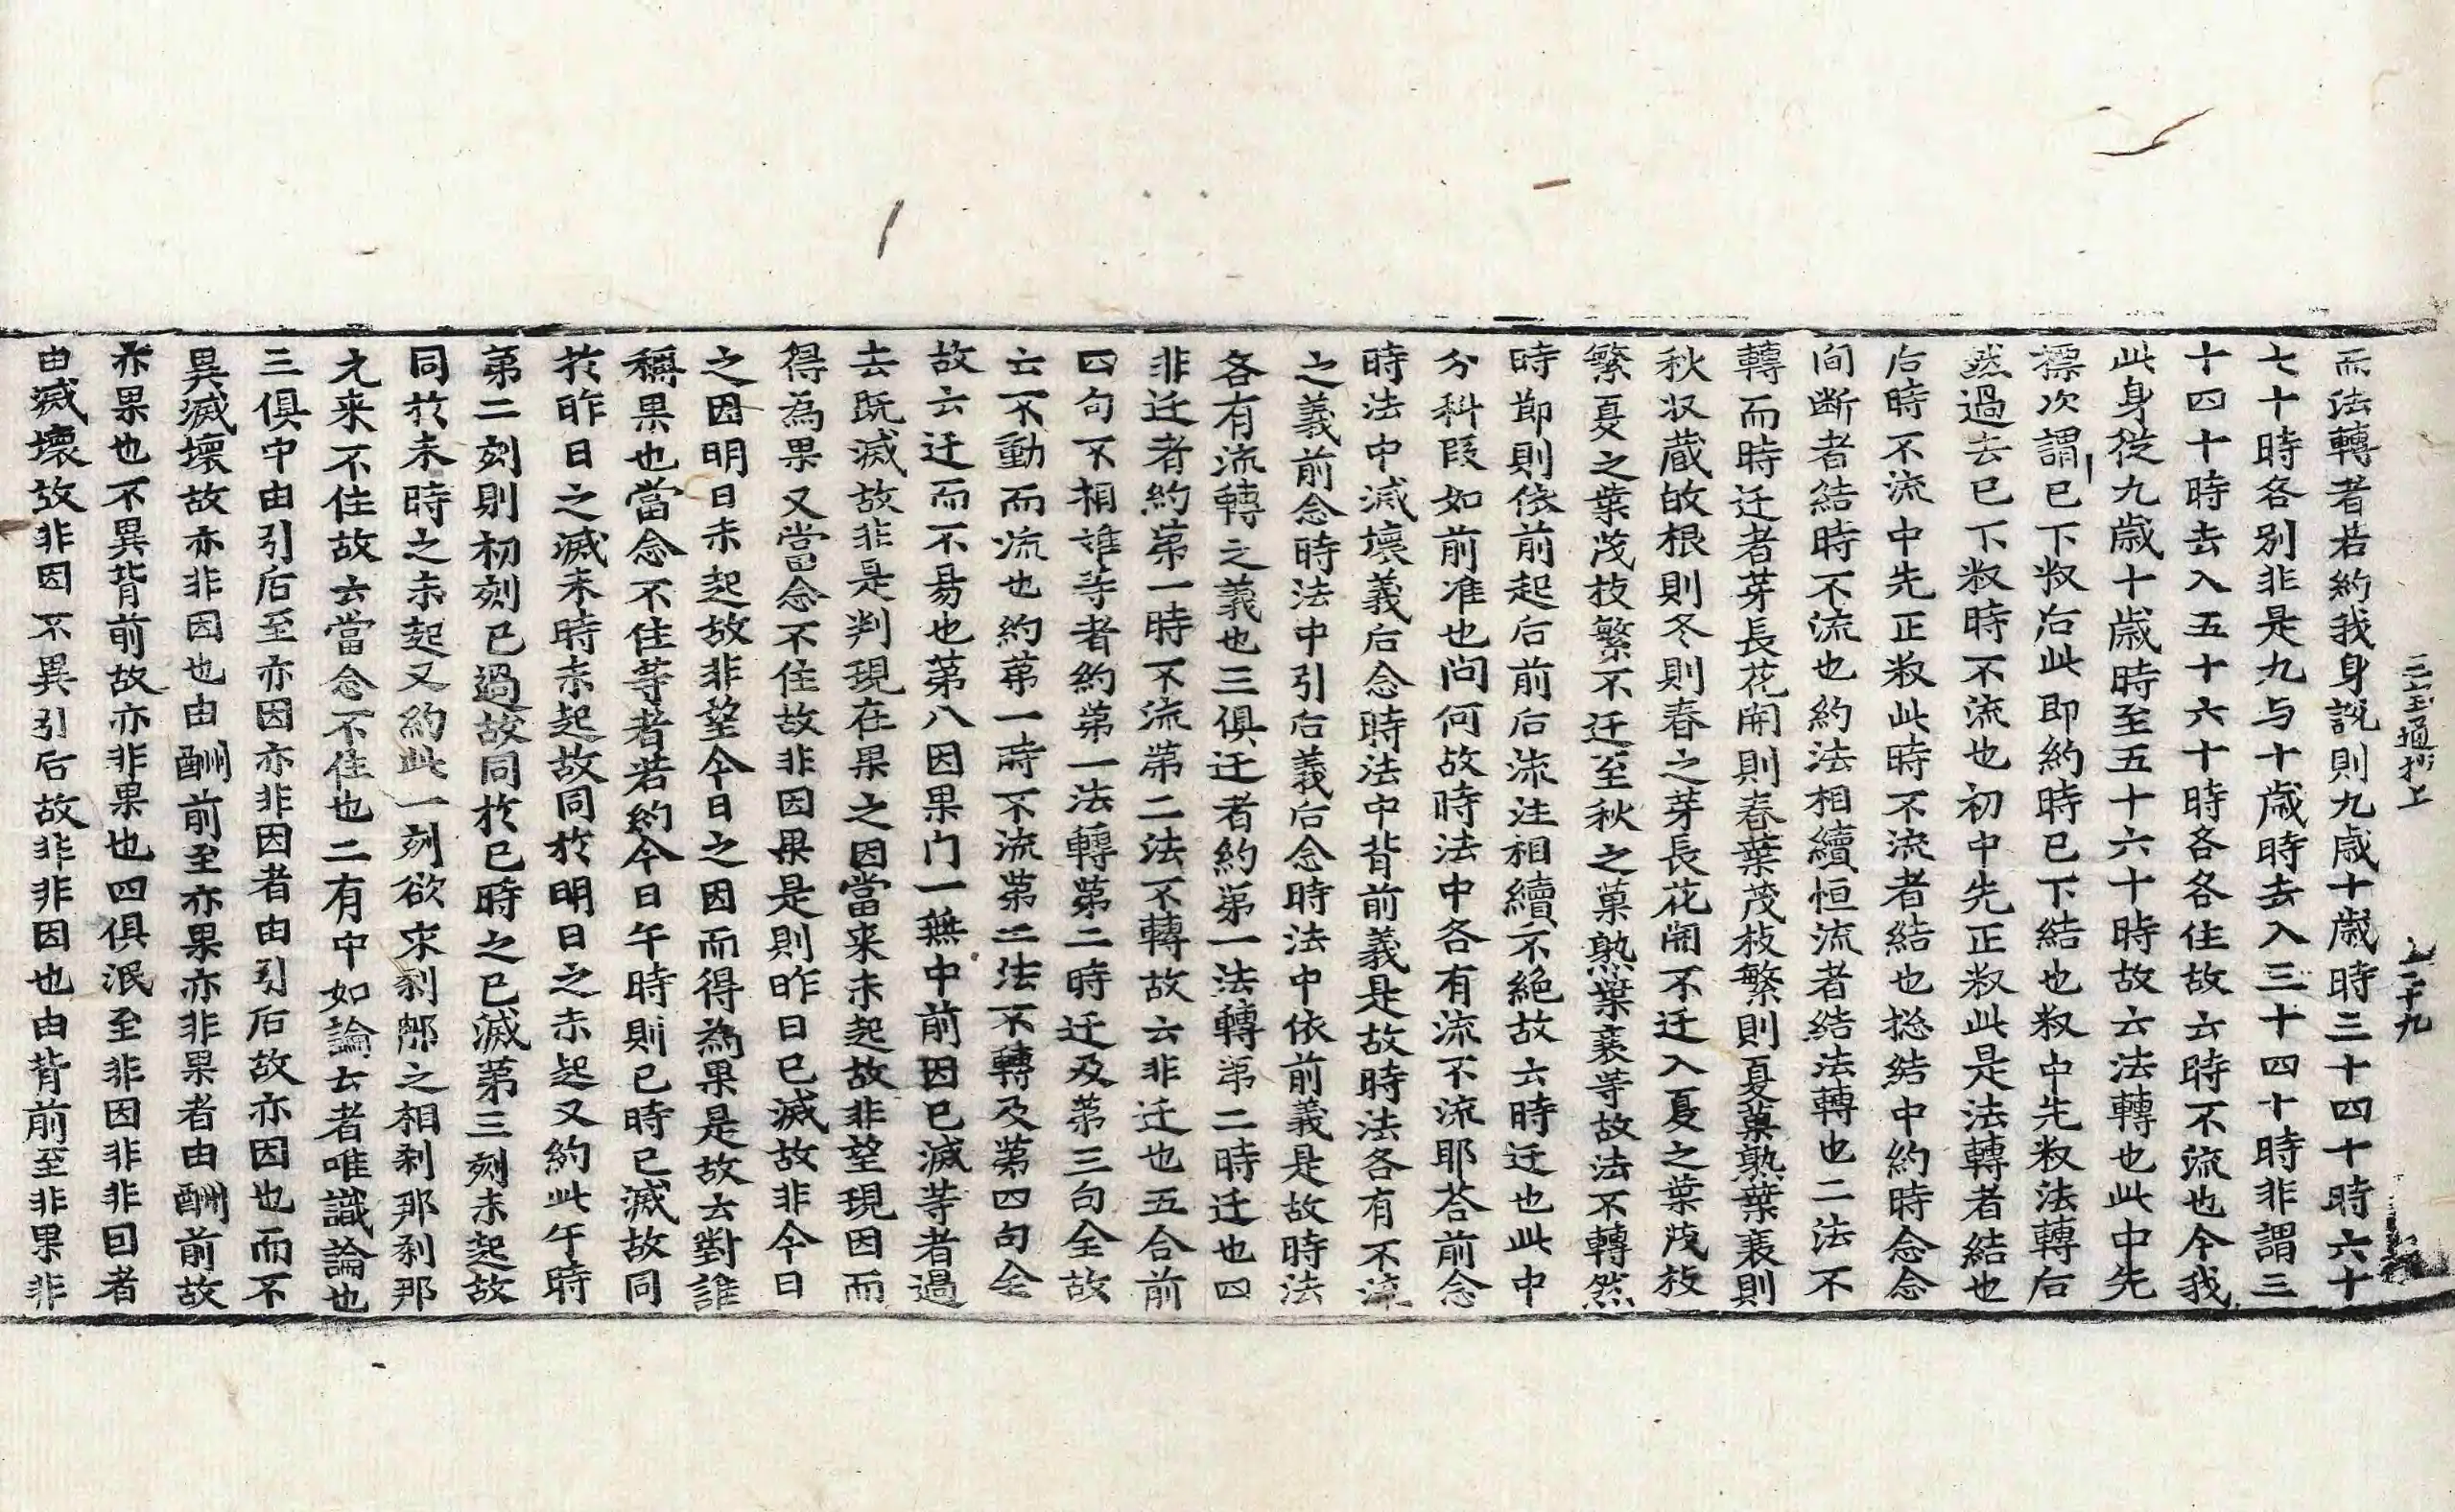 三宝通抄上　　二十九
而法轉者若約我身說則九歲十歲時三十四十時六十
七十時各別非是九与十歲時去入三十四十時非謂三
十四十時去入五十六十時各各住故云時不流也今我
此身從九歲十歲時至五十六十時故云法轉也此中先
標次謂已下叙后此即約時已下結也叙中先叙法轉后
然過去已下叙時不流也初中先正叙此是法轉者結也
后時不流中先正叙此時不流者結也揔結中約時念念
间断者結時不流也約法相續恒流者結法轉也二法不
轉而時迁者芽長花開則春葉茂枝繁則夏菓熟葉衰則
秋収蔵故根則冬則春之芽長花開不迁入夏之葉茂枝
繁夏之葉茂枝繁不迁至秋之菓熟葉衰等故法不轉然
時節則依前起后前后流注相續不絕故云時迁也此中
分科叚如前准也问何故時法中各有流不流耶荅前念
時法中滅壞義后念時法中背前義是故時法各有不流
之義前念時法中引后義后念時法中依前義是故時法
各有流轉之義也三俱迁者約第一法轉第二時迁也四
非迁者約第一時不流第二法不轉故云非迁也五合前
四句不相離等者約第一法轉第二時迁及第三句全故
云不動而流也約第一時不流第二法不轉及第四句全
故云迁而不易也第八因果门一無中前因已滅等者過
去既滅故非是判現在果之因當来未起故非望現因而
得為果又當念不住故非因果是則昨日已滅故非今日
之因明日未起故非望今日之因而得為果是故云對誰
稱果也當念不住等者若約今日午時則已時已滅故同
扵昨日之滅来時未起故同扵明日之未起又約此午時
第二刻則初刻已過故同扵已時之已滅第三刻未起故
同扵未時之未起又約此一刻欲求刹那之相刹那刹那
尢来不住故云當念不住也二有中如論云者唯識論也
三俱中由引后至亦因亦非因者由引后故亦因也而不
異滅壞故亦非因也由酬前至亦果亦非果者由酬前故
亦果也不異背前故亦非果也四俱泯至非因非非因者
由滅壞故非因不異引后故非非因也由背前至非果非